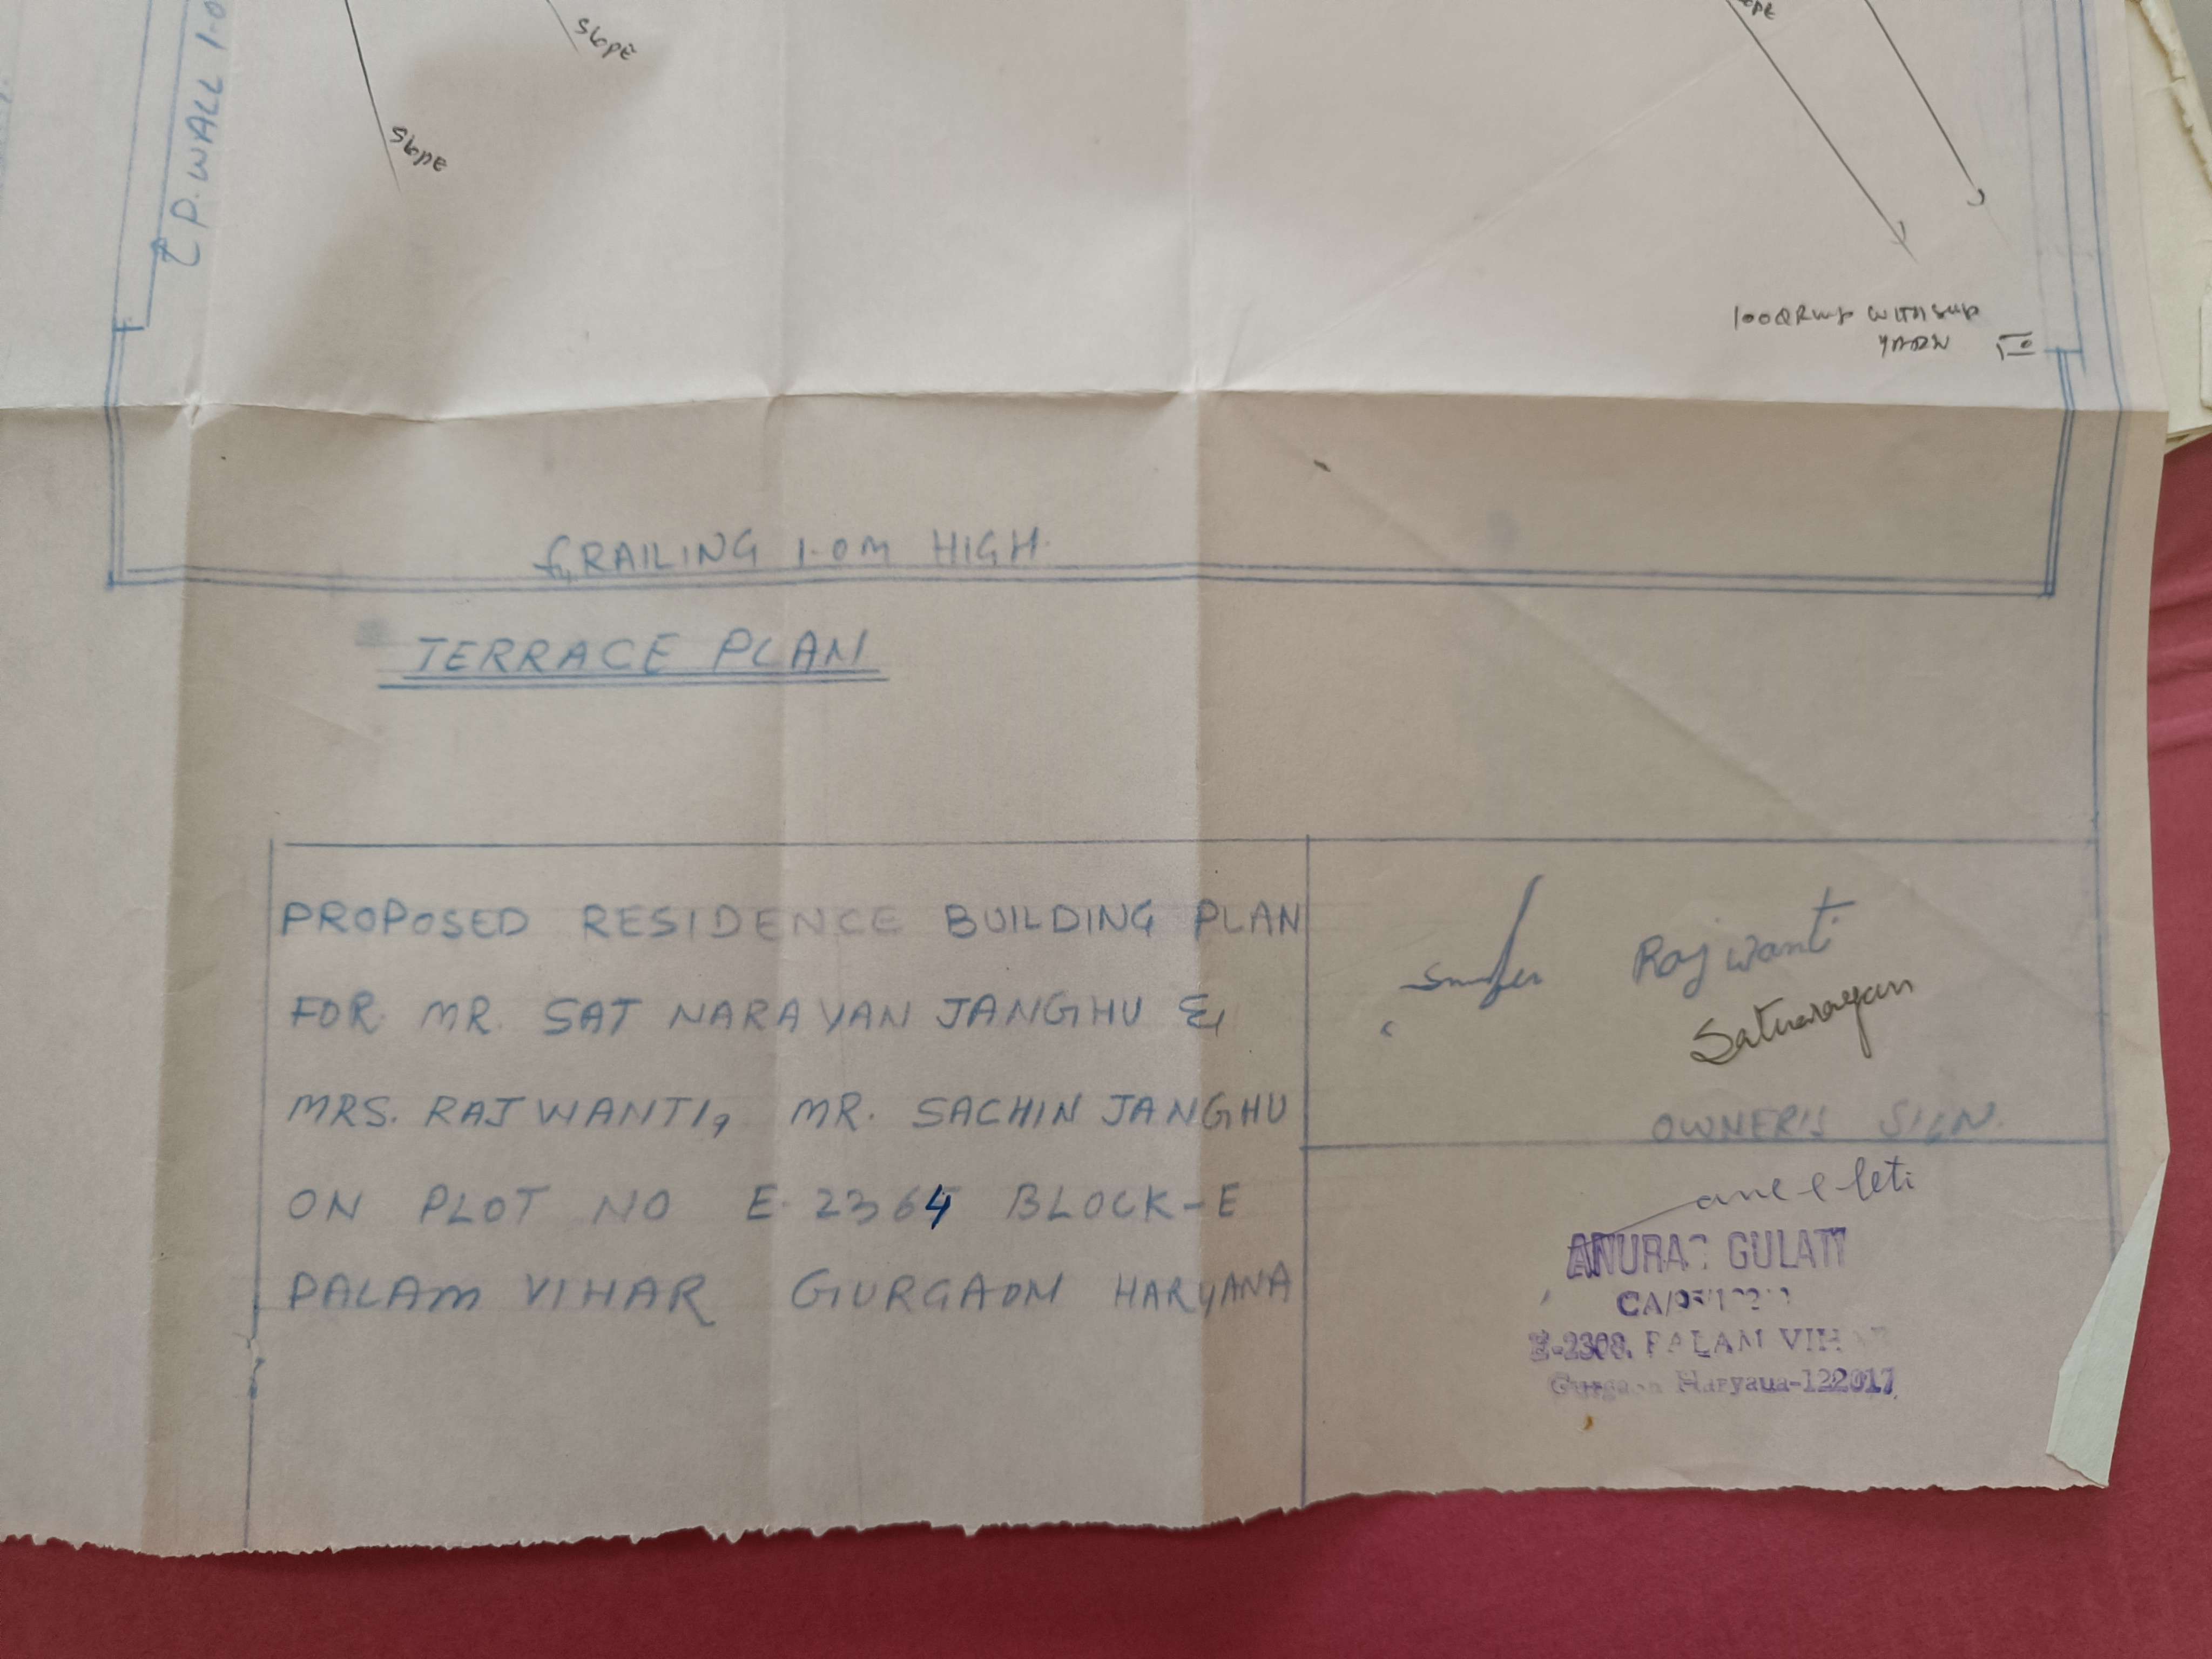 P. WALL 1.0
SlopE
SlopE
WITH
RAILING 1.0M HIGH.
TERRACE PLAN
PROPOSED RESIDENCE BUILDING PLAN
FOR MR. SAT NARAYAN JANGHU &
MRS. RAJWANTI, MR. SACHIN JANGHU
ON PLOT NO E. 2364 BLOCK-E
PALAM VIHAR GURGAON HARYANA
Rajwanti
Satnarayan
OWNER'S SIGN.
GULATI
E-2308, PALAM
Haryana-122017